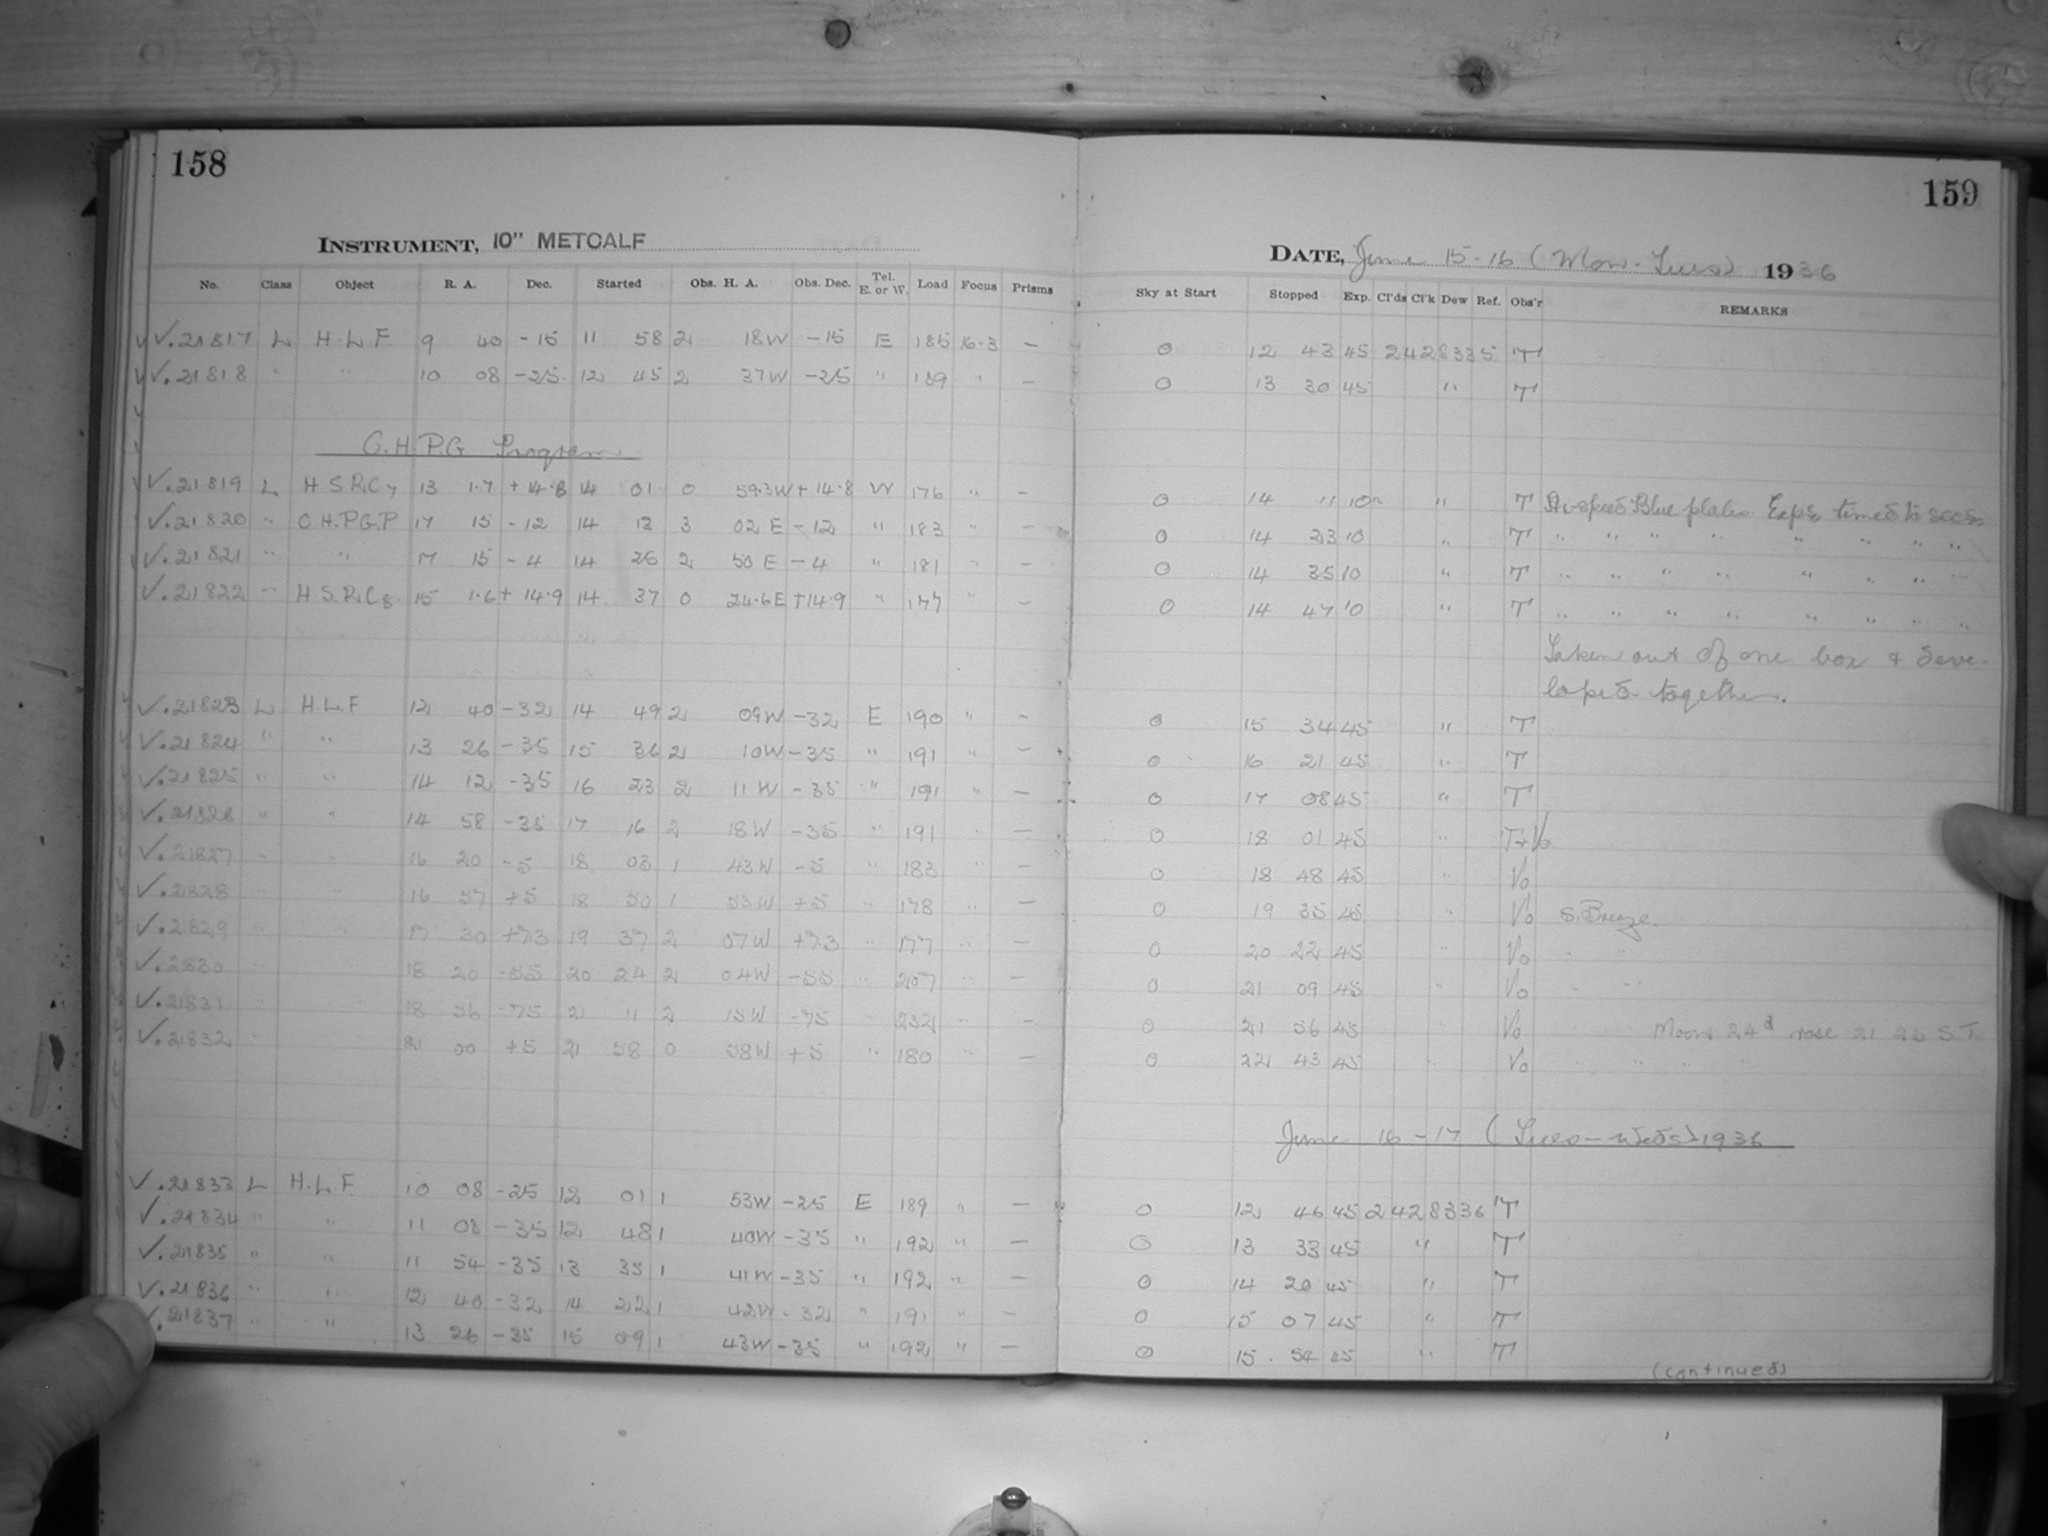 158
INSTRUMENT, 10" METCALF
No. Class Object R. A. Dec. Started Obs. H. A. Obs. Dec. Tel. E. or W. Load Focus Prisms
✓.21817 L H.L.F 9 40 -15 11 58 2 18W -15 E 185 16.3 —
✓.21818 " " 10 08 -25 12 45 2 37W -25 " 189 " —
C.H.P.G. Program
✓.21819 L H.S.P.C7 13 1.7 +14.8 14 01 0 59.3W +14.8 W 176 " —
✓.21820 " C.H.P.G.P 17 15 -12 14 13 3 02 E -12 " 183 " —
✓.21821 " " 17 15 -4 14 25 2 50 E -4 " 181 " —
✓.21822 — H.S.P.C8 15 1.6 +14.9 14 37 0 24.6E +14.9 " 177 " —
✓.21823 L H.L.F 12 40 -32 14 49 2 09W -32 E 190 " —
✓.21824 " " 13 26 -35 15 36 2 10W -35 " 191 " —
✓.21825 " " 14 12 -35 16 23 2 11W -35 " 191 " —
✓.21826 " " 14 58 -35 17 16 2 18W -35 " 191 " —
✓.21827 " " 16 20 -5 18 03 1 43W -5 " 183 " —
✓.21828 " " 16 57 +5 18 50 1 53W +5 " 178 " —
✓.21829 " " 17 30 19 37 2 07W " 177 " —
✓.2830 " 18 20 -55 20 24 2 04W -55 " 207 " —
✓.21831 " 18 56 -75 21 11 2 15W -75 " 232 " —
✓.21832 " 21 00 +5 21 58 0 58W +5 " 180 " —
✓.21833 L H.L.F. 10 08 -25 12 01 1 53W -25 E 189 " —
✓.21834 " " 11 08 -35 12 48 1 40W -35 " 192 " —
✓.21835 " " 11 54 -35 13 35 1 41W -35 " 192 " —
✓.21836 " " 12 40 -32 14 22 1 42W -32 " 191 " —
✓.21837 " " 13 26 -35 15 09 1 43W -35 " 192 " —
159
DATE, June 15-16 (Mon-Tues) 1936
Sky at Start Stopped Exp. Cl'ds Cl'k Dew Ref. Obs'r REMARKS
0 12 43 45 2428335 T
0 13 30 45 " T
0 14 11 10 " T Blue plates. Exps. timed to secs
0 14 23 10 " T " " " " " " " "
0 14 35 10 " T " " " " " " " "
0 14 47 10 " T " " " " " " " "
Taken out of one box & deve-
loped together.
0 15 34 45 " T
0 16 21 45 " T
0 17 08 45 " T
0 18 01 45 " T+Vo
0 18 48 45 " Vo
0 19 35 45 " Vo S. Breeze.
0 20 22 45 " Vo " "
0 21 09 45 " Vo " "
0 21 56 45 " Vo Moon 24d rose 21 25 S.T.
0 22 43 45 " Vo " " " "
June 16-17 (Tues-Weds) 1936
0 12 46 45 2428336 T
0 13 33 45 " T
0 14 20 45 " T
0 15 07 45 " T
0 15 54 45 " T
(continued)